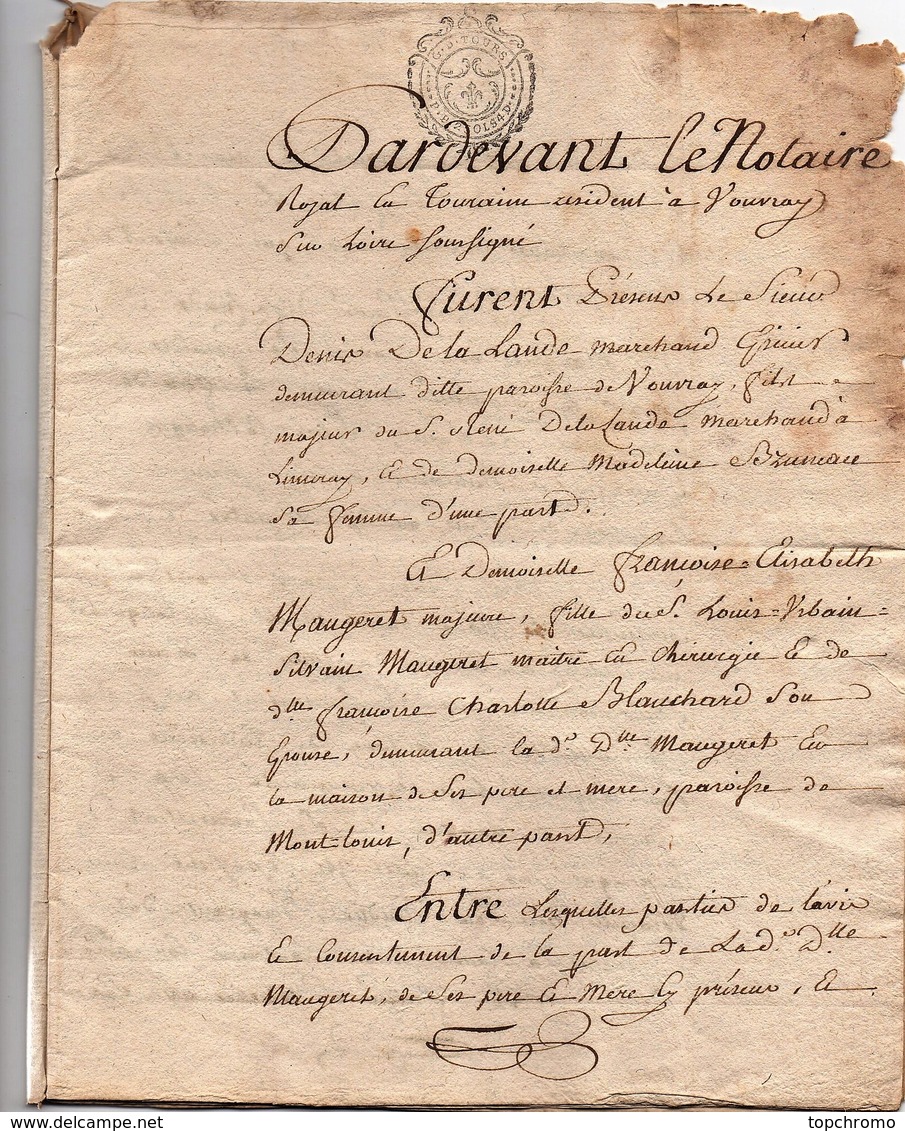 G.D.TOURS
P.B.2.SOLS4D.
Pardevant le Notaire
Royal En Touraine résident à Vouvray
Sur Loire soussigné
Furent Présens Le Sieur
Denis De la Lande marchand Epicier
demeurant ditte paroisse de Vouvray, fils
majeur du S. René De la Lande marchand à
Limeray, & de demoiselle Madeleine
Sa femme d'une part.
Et Demoiselle françoise=Elisabeth
Maugeret majeure, fille du S. Louis=Urbain=
Silvain Maugeret maitre en chirurgie & de
dlle françoise Charlotte Blanchard Son
Epouse, demeurant la de. Dlle Maugeret En
la maison de Ses pere et mere, paroisse de
Mont=louis, d'autre part,
Entre Lesquelles parties de l'avis
& Consentement de la part de La de. Dlle
Maugeret, de Ses pere & Mere Cy présens, &
www.delcampe.net
topchromo